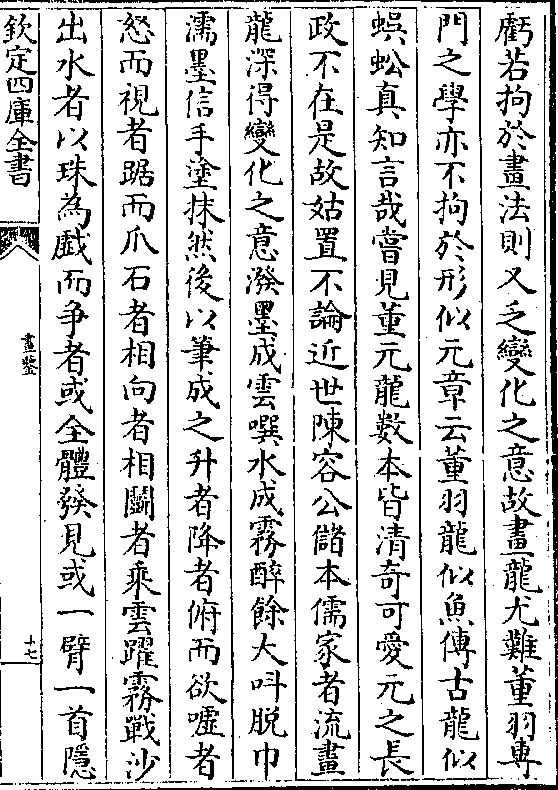 虧若拘於畫法則又乏變化之意故畫龍尤難董羽專
門之學亦不拘於形似元章云董羽龍似魚傳古龍似
蜈蚣真知言哉嘗見董元龍數本皆清奇可愛元之長
政不在是故姑置不論近世陳容公儲本儒家者流畫
龍深得變化之意潑墨成雲噀水成霧醉餘大呌脱巾
濡墨信手塗抹然後以筆成之升者降者俯而欲噓者
怒而視者踞而爪石者相向者相鬭者乘雲躍霧戰沙
出水者以珠為戲而争者或全體發見或一臂一首隱
欽定四庫全書
畫鑒
十七